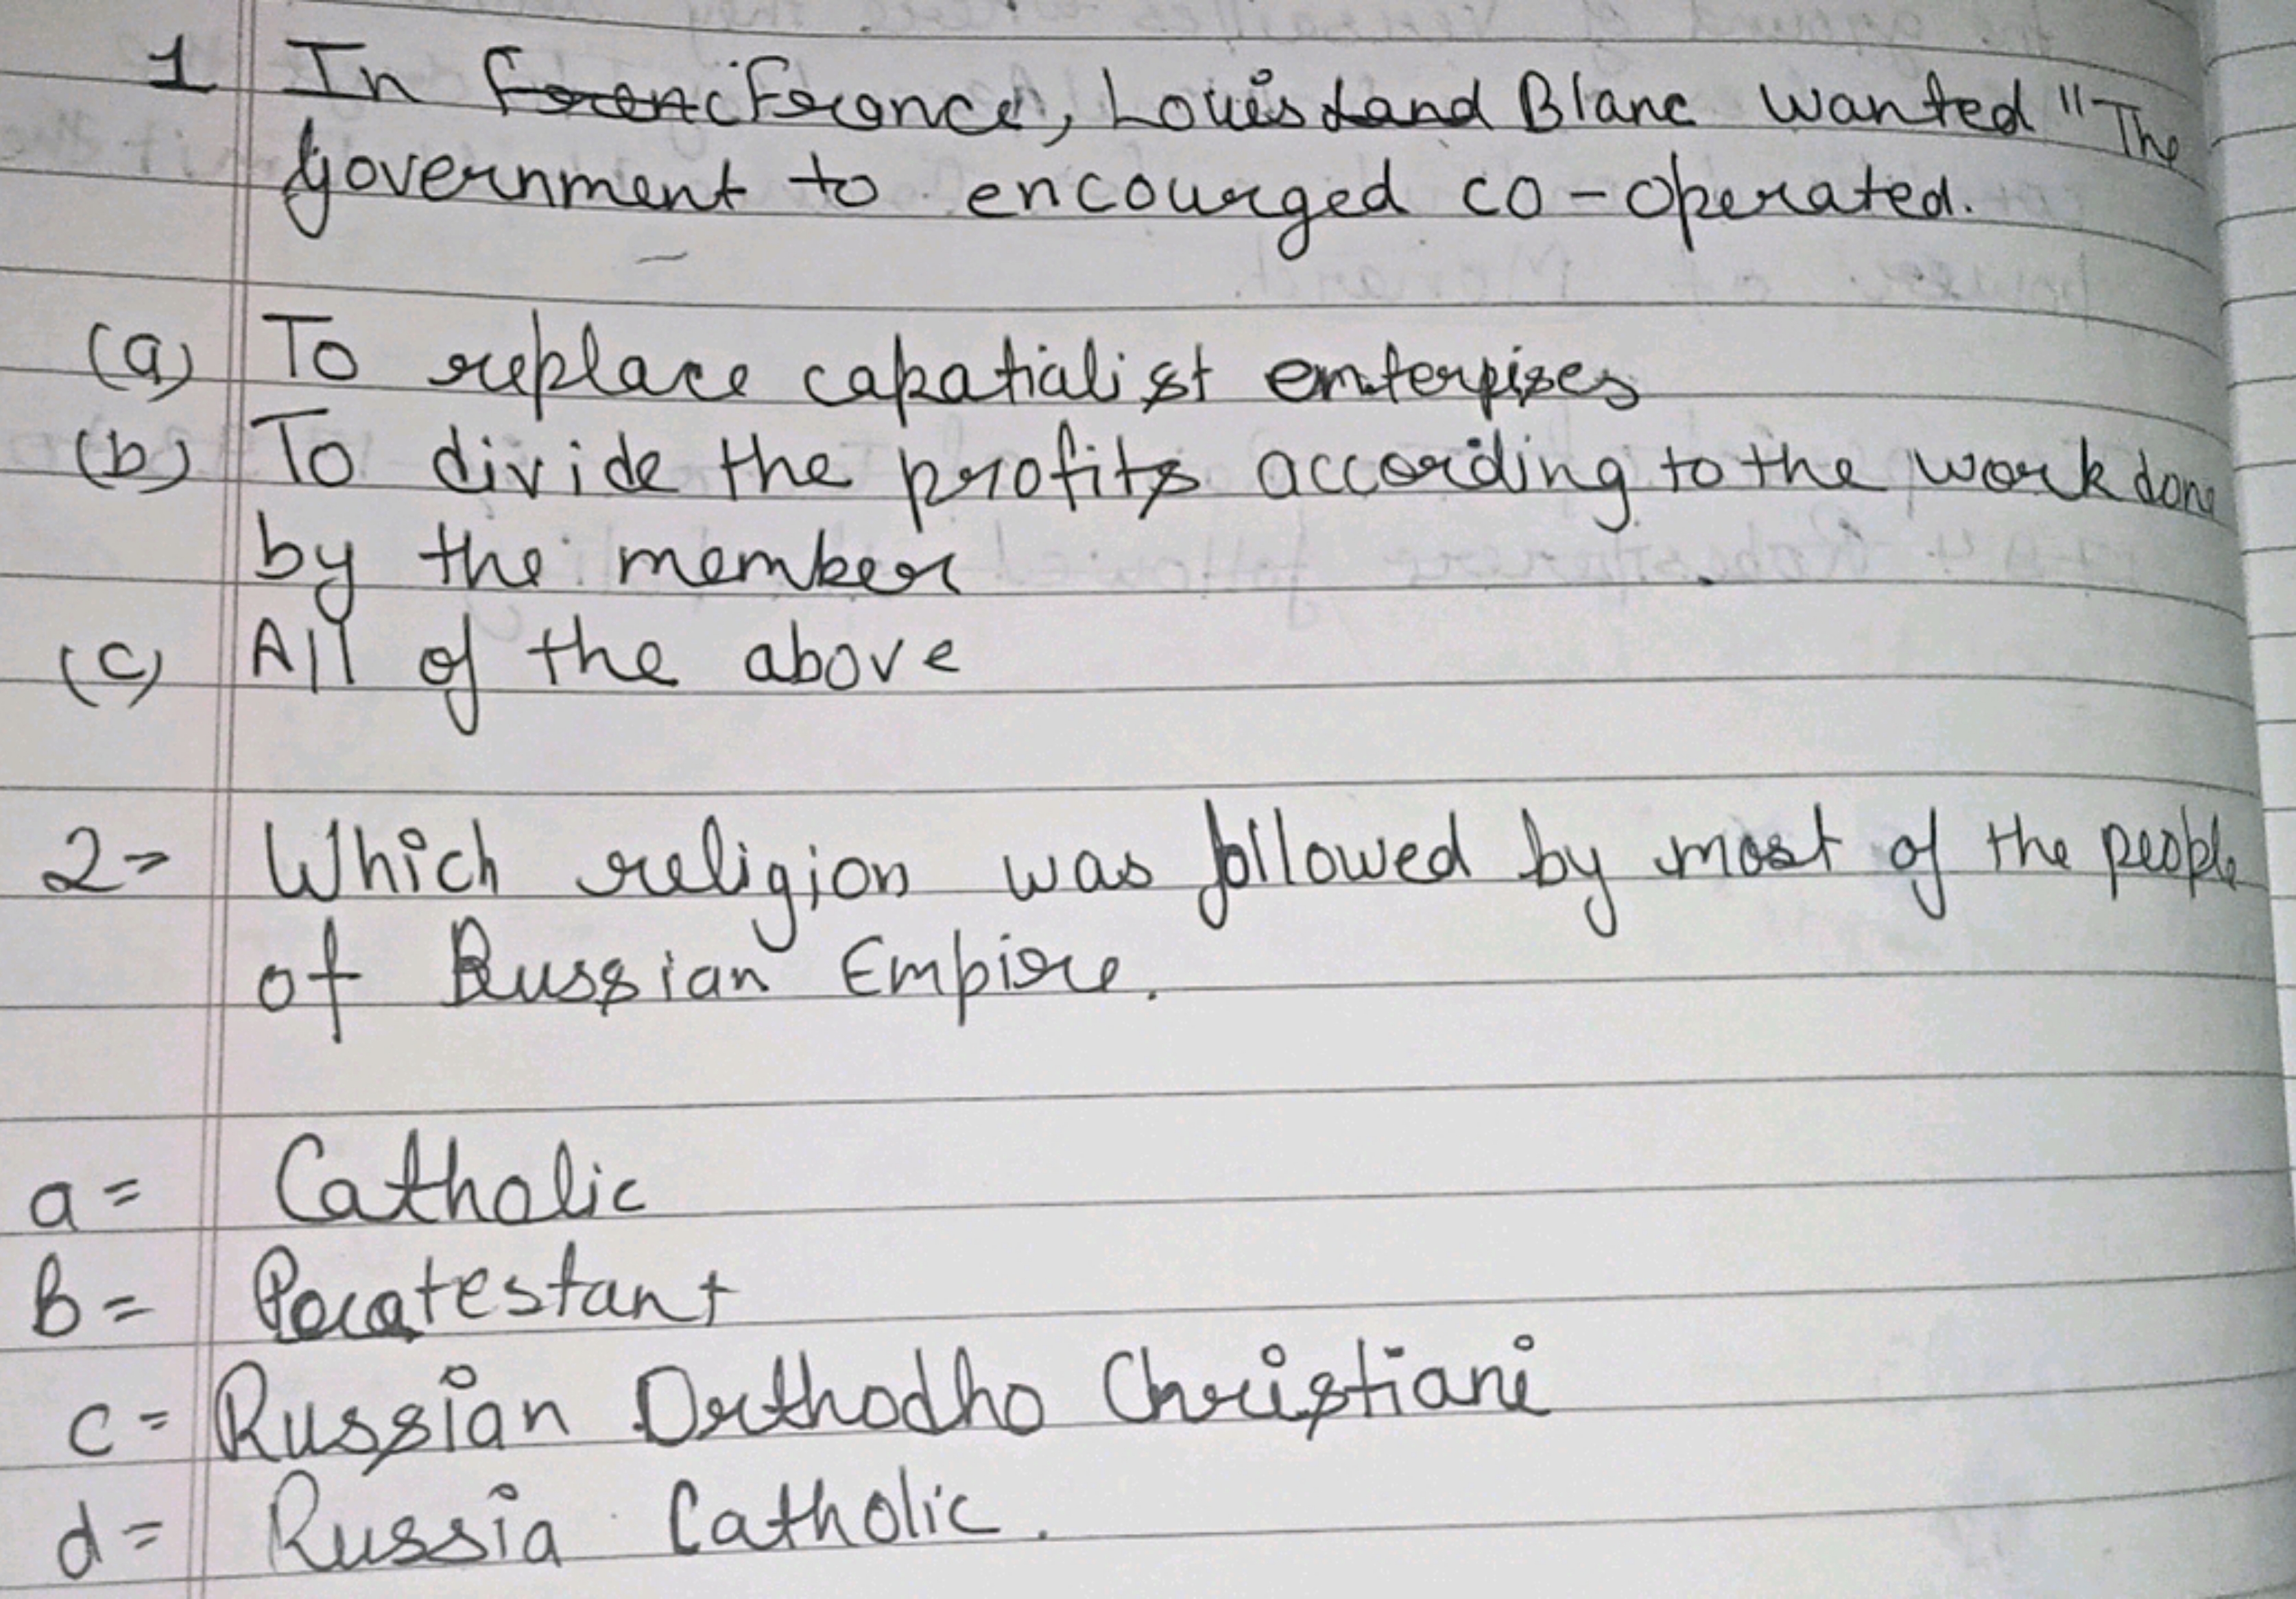 1 In France, Louis Blanc wanted "The
Government to encourged co-operated.
(a) To replace capatialist enterpises
(b) To divide the profits according to the work done
by the member
(c) All of the above
2= Which religion was followed by most of the people
of Russian Empire.
a= Catholic
B= Protestant
c= Russian Orthodho Christiani
d= Russia Catholic.